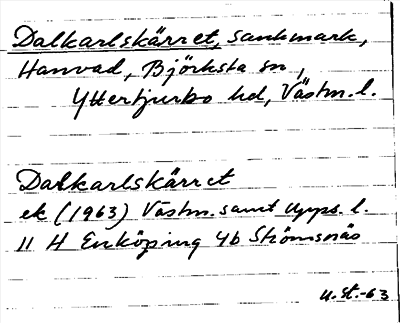 Dalkarlskärret, sankmark,
Hanvad, Björksta sn,
Yttertjurbo hd, Västm. l.
Dalkarlskärret
ek (1963) Västm. samt Upps. l.
11 H Enköping 4b Strömsnäs
U. St. -63